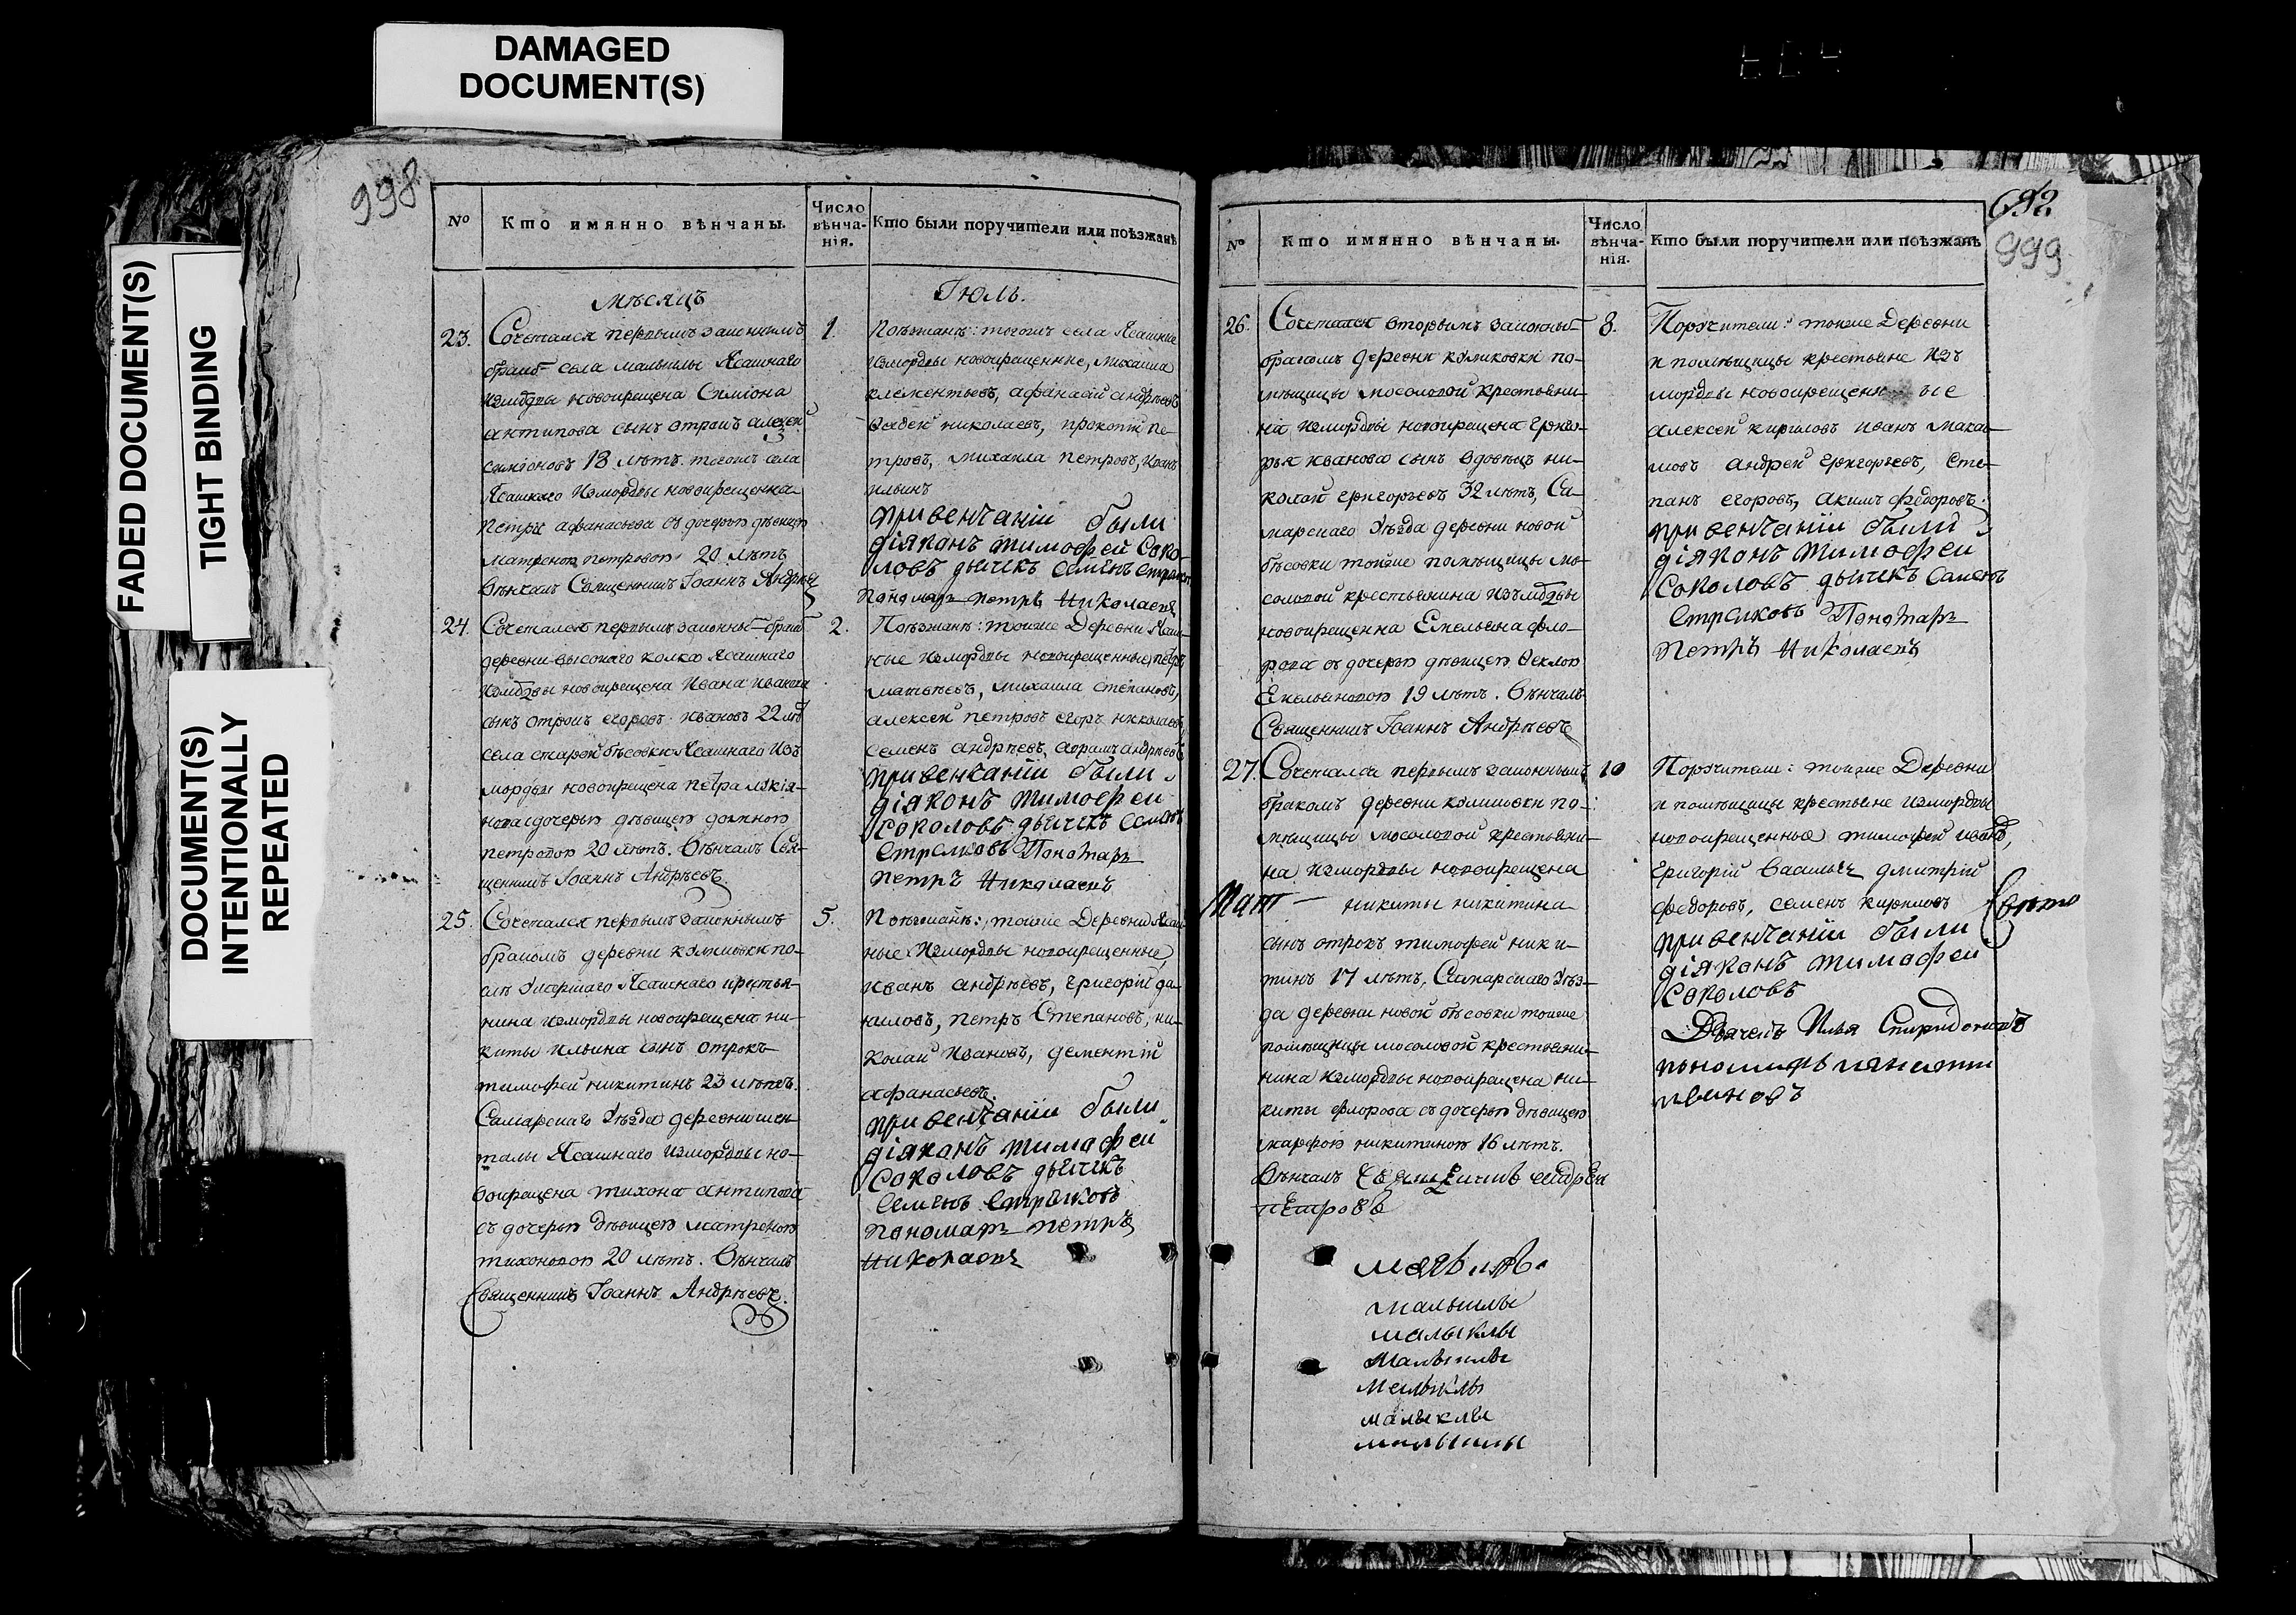 DAMAGED
DOCUMENT(S)
FADED DOCUMENT(S)
TIGHT BINDING
DOCUMENT(S)
INTENTIONALLY
REPEATED
998
№
Кто имянно вѣнчаны.
Число
вѣнча-
нія.
Кто были поручители или поѣзжанѣ
мѣсяцъ
Іюль.
23.
Сочетался первымъ законнымъ
села малыклы Ясашнаго
новокрещена Симіона
антипова сынъ отрокъ алексей
симіоновъ 18 лѣтъ. тогожъ села
Ясашнаго измордвы новокрещенна
петра афанасьева съ дочерью дѣвицею
матреною петровою 20 лѣтъ
Вѣнчалъ Священникъ Іоаннъ Андрѣев
1.
Поѣзжанѣ: тогожъ села Ясашные
измордвы новокрещенные, михаила
клементьевъ, афанасій андрѣевъ
Фадей николаевъ, прокопій пе-
тровъ, михаила петровъ, иванъ
ильинъ
привенчаніи были
діяконъ тимофей Соко-
ловъ дьячекъ Семенъ Стрелков
Пономарь петръ Николаевъ
24.
Сочетался первымъ законны брако
деревни высокаго колка Ясашнаго
новокрещена Ивана Иванова
сынъ отрокъ егоровъ ивановъ 22 лѣ
села старой бѣсовки Ясашнаго изъ
мордвы новокрещена петра
дочерью дѣвицею
петровою 20 лѣтъ. Вѣнчалъ Свя-
щенникъ Іоаннъ Андрѣевъ
2.
Поѣзжанѣ: тоѣже Деревни Ясаш-
ные измордвы новокрещенные, петръ
матвѣевъ, михаила степановъ,
алексей петровъ егоръ николаевъ
семенъ андрѣевъ, абрамъ андрѣевъ
привенчаніи были
діяконъ тимофеи
Соколовъ дьячекъ Семенъ
Стрелковъ Пономарь
петръ Николаевъ
25.
Сочетался первымъ законнымъ
бракомъ деревни куликовки по-
Ясашнаго крестья-
нина измордвы новокрещена ни-
киты ильина сынъ отрокъ
тимофей никитинъ 23 лѣтъ
Самарскаго уѣзда деревни мен-
талы Ясашнаго измордвы но-
вокрещена тихона антипова
съ дочерью дѣвицею матреною
тихоновою 20 лѣтъ. Вѣнчалъ
Священникъ Іоаннъ Андрѣевъ.
5.
Поѣзжанѣ: тоѣже Деревни Ясаш
ные измордвы новокрещенные,
Иванъ андрѣевъ, григорій да-
ниловъ, петръ Степановъ, ни-
колай Ивановъ, дементій
афанасьевъ.
привенчаніи были
діяконъ тимофеи
Соколовъ дьячекъ
Семенъ Стрелковъ
пономарь петръ
Николаевъ
692
999
№
Кто имянно вѣнчаны.
Число
вѣнча-
нія.
Кто были поручители или поѣзжанѣ
26.
Сочетался вторымъ законны
бракомъ деревни куликовки по-
мѣщицы мосоловой крестьяни-
на измордвы новокрещена григо-
рья иванова сынъ вдовецъ ни-
колай григорьевъ 32 лѣтъ, Са-
марскаго уѣзда деревни новой
бѣсовки тоѣже помѣщицы мо-
соловой крестьянина измордвы
новокрещенна Емельяна фло-
рова съ дочерью дѣвицею Феклою
Емельяновою 19 лѣтъ. Вѣнчалъ
Священникъ Іоаннъ Андрѣевъ
8.
Поручители: тоѣже Деревни
и помѣщицы крестьяне изъ
мордвы новокрещенн ые
алексей кириловъ иванъ макси-
мовъ андрей григорьевъ, Сте-
панъ егоровъ, акимъ федоровъ.
привенчаніи были
діяконъ тимофеи
Соколовъ дьячекъ Семенъ
Стрелковъ Пономарь
петръ Николаевъ
27.
Сочетался первымъ законнымъ
бракомъ деревни куликовки по-
мѣщицы мосоловой крестьяни-
на измордвы новокрещена
никиты никитина
сынъ отрокъ тимофей ники-
тинъ 17 лѣтъ, Самарскаго уѣз-
да деревни новой бѣсовки тоѣже
помѣщицы мосоловой крестьяни-
нина измордвы новокрещена ни-
киты флорова съ дочерью дѣвицею
марфою никитиною 16 лѣтъ.
Вѣнчалъ Священникъ андрей
петровъ
10
Поручители: тоѣже Деревни
и помѣщицы крестьяне измордвы
новокрещенные тимофей иванов,
григорій Васильевъ дмитрій
федоровъ, семенъ кириловъ
привенчаніи были
діяконъ тимофеи
Соколовъ
Дьячекъ Илья Спиридоновъ
малыклы
малыклы
малыклы
малыклы
малыклы
малыклы